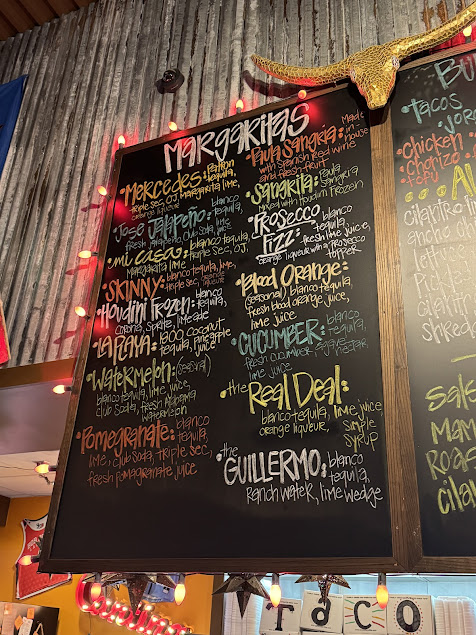 MARGARITAS
• MERCEDES: Patron
tequila,
triple sec, OJ, Margarita lime,
orange liqueur
• José Jalapeño: blanco
tequila,
fresh jalapeño, club soda, lime
juice
• mi casa: blanco tequila,
triple sec, OJ,
Margarita lime
• SKINNY: blanco tequila, lime,
triple sec, orange
liqueur
• Houdini Frozen: blanco
tequila,
corona, Sprite, limeade
• LA PLAYA: 1800 coconut
tequila, pineapple
juice
• Watermelon: (seasonal)
blanco tequila, lime juice,
club Soda, fresh
Watermelon
• Pomegranate: blanco
tequila,
lime, club soda, triple sec,
fresh pomegranate juice
• Paula Sangria: Made
in-
house
with Spanish red wine
and fresh fruit
• Sangrita: Paula
Sangria
mixed with Houdini Frozen
• Prosecco
Fizz: blanco
tequila,
fresh lime juice,
orange liqueur with a Prosecco
topper
• Blood Orange:
(seasonal) blanco tequila,
fresh blood orange juice,
lime juice
• CUCUMBER: blanco
tequila,
fresh cucumber, agave
nectar,
lime juice
• the Real Deal:
blanco tequila, lime juice
orange liqueur, simple
syrup
• the
GUILLERMO: blanco
tequila,
Ranch water, lime wedge
• tacos
• Chicken
chorizo
tofu
cilantro
shredd
Roas
cila
taco